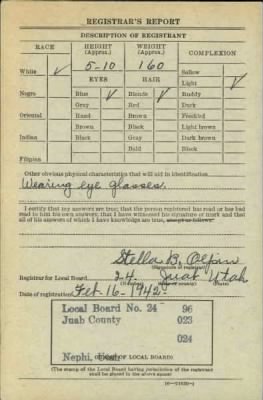 REGISTRAR'S REPORT
DESCRIPTION OF REGISTRANT
RACE HEIGHT (Approx.) WEIGHT (Approx.) COMPLEXION
5-10 160
White ✓ EYES HAIR Sallow
Light ✓
Negro Blue ✓ Blonde ✓ Ruddy
Gray Red Dark
Oriental Hazel Brown Freckled
Brown Black Light brown
Indian Black Gray Dark brown
Bald Black
Filipino
Other obvious physical characteristics that will aid in identification
Wearing eye glasses.
I certify that my answers are true; that the person registered has read or has had
read to him his own answers; that I have witnessed his signature or mark and that
all of his answers of which I have knowledge are true, except as follows:
Stella B.
(Signature of registrar)
Registrar for Local Board 24 Juab Utah
Date of registration Feb. 16 - 1942
Local Board No. 24 96
Juab County 023
024
Nephi, Utah
(STAMP OF LOCAL BOARD)
(The stamp of the Local Board having jurisdiction of the registrant
shall be placed in the above space)